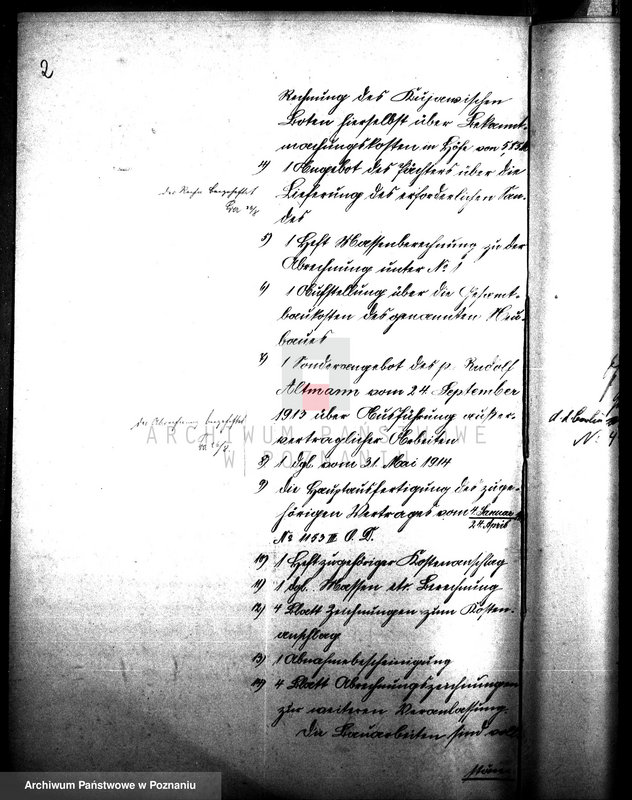 2
Rechnung des Kujawischen
Boten hierselbst über Bekannt-
machungskosten in Höhe von
4) 1 Angebot des Pächters über die
Lieferung des erforderlichen San-
des
5) 1 Heft Massenberechnung zu der
Abrechnung unter No 1
6) 1 Aufstellung über die Gesamt-
baukosten des genannten Neu-
baues
7) 1 Sonderangebot des p. Rudolf
Altmann vom 24. September
1913 über Ausführung außer-
vertraglicher Arbeiten
8) 1 dgl. vom 31. Mai 1914
9) die Hauptausfertigung des zuge-
hörigen Vertrages vom 4. Januar
24. April
No 1153 III O. D.
10) 1 Heft zugehöriger Kostenanschlag
11) 1 dgl. Massen etc. Berechnung
12) 4 Blatt Zeichnungen zum Kosten-
anschlag
13) 1 Abnahmebescheinigung
14) 4 Blatt Abrechnungszeichnungen
zur weiteren Veranlassung.
Die Bauarbeiten sind voll-
ARCHIWUM PAŃSTWOWE
W POZNANIU
Archiwum Państwowe w Poznaniu